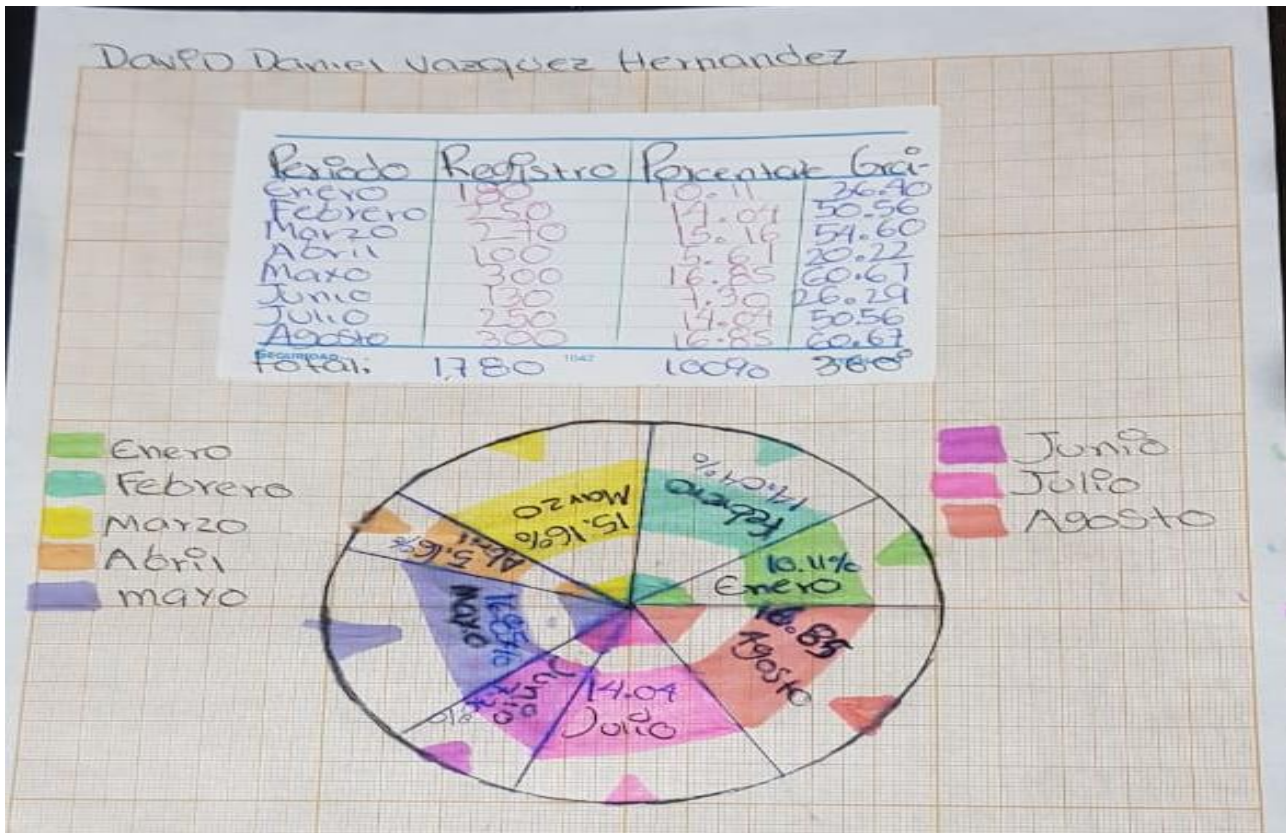 David Daniel Vazquez Hernandez
Periodo Registro Porcentaje Gra-
Enero 180 10.11 36.40
Febrero 250 14.04 50.56
Marzo 270 15.16 54.60
Abril 100 5.61 20.22
Mayo 300 16.85 60.67
Junio 130 7.30 26.29
Julio 250 14.04 50.56
Agosto 300 16.85 60.67
SEGURIDAD 1042
Total: 1,780 100% 360°
Enero
Febrero
Marzo
Abril
mayo
Junio
Julio
Agosto
14.04%
Febrero
15.16%
Marzo
5.6%
Abril
10.11%
Enero
16.85%
Mayo
16.85
Agosto
Junio
14.04
Julio